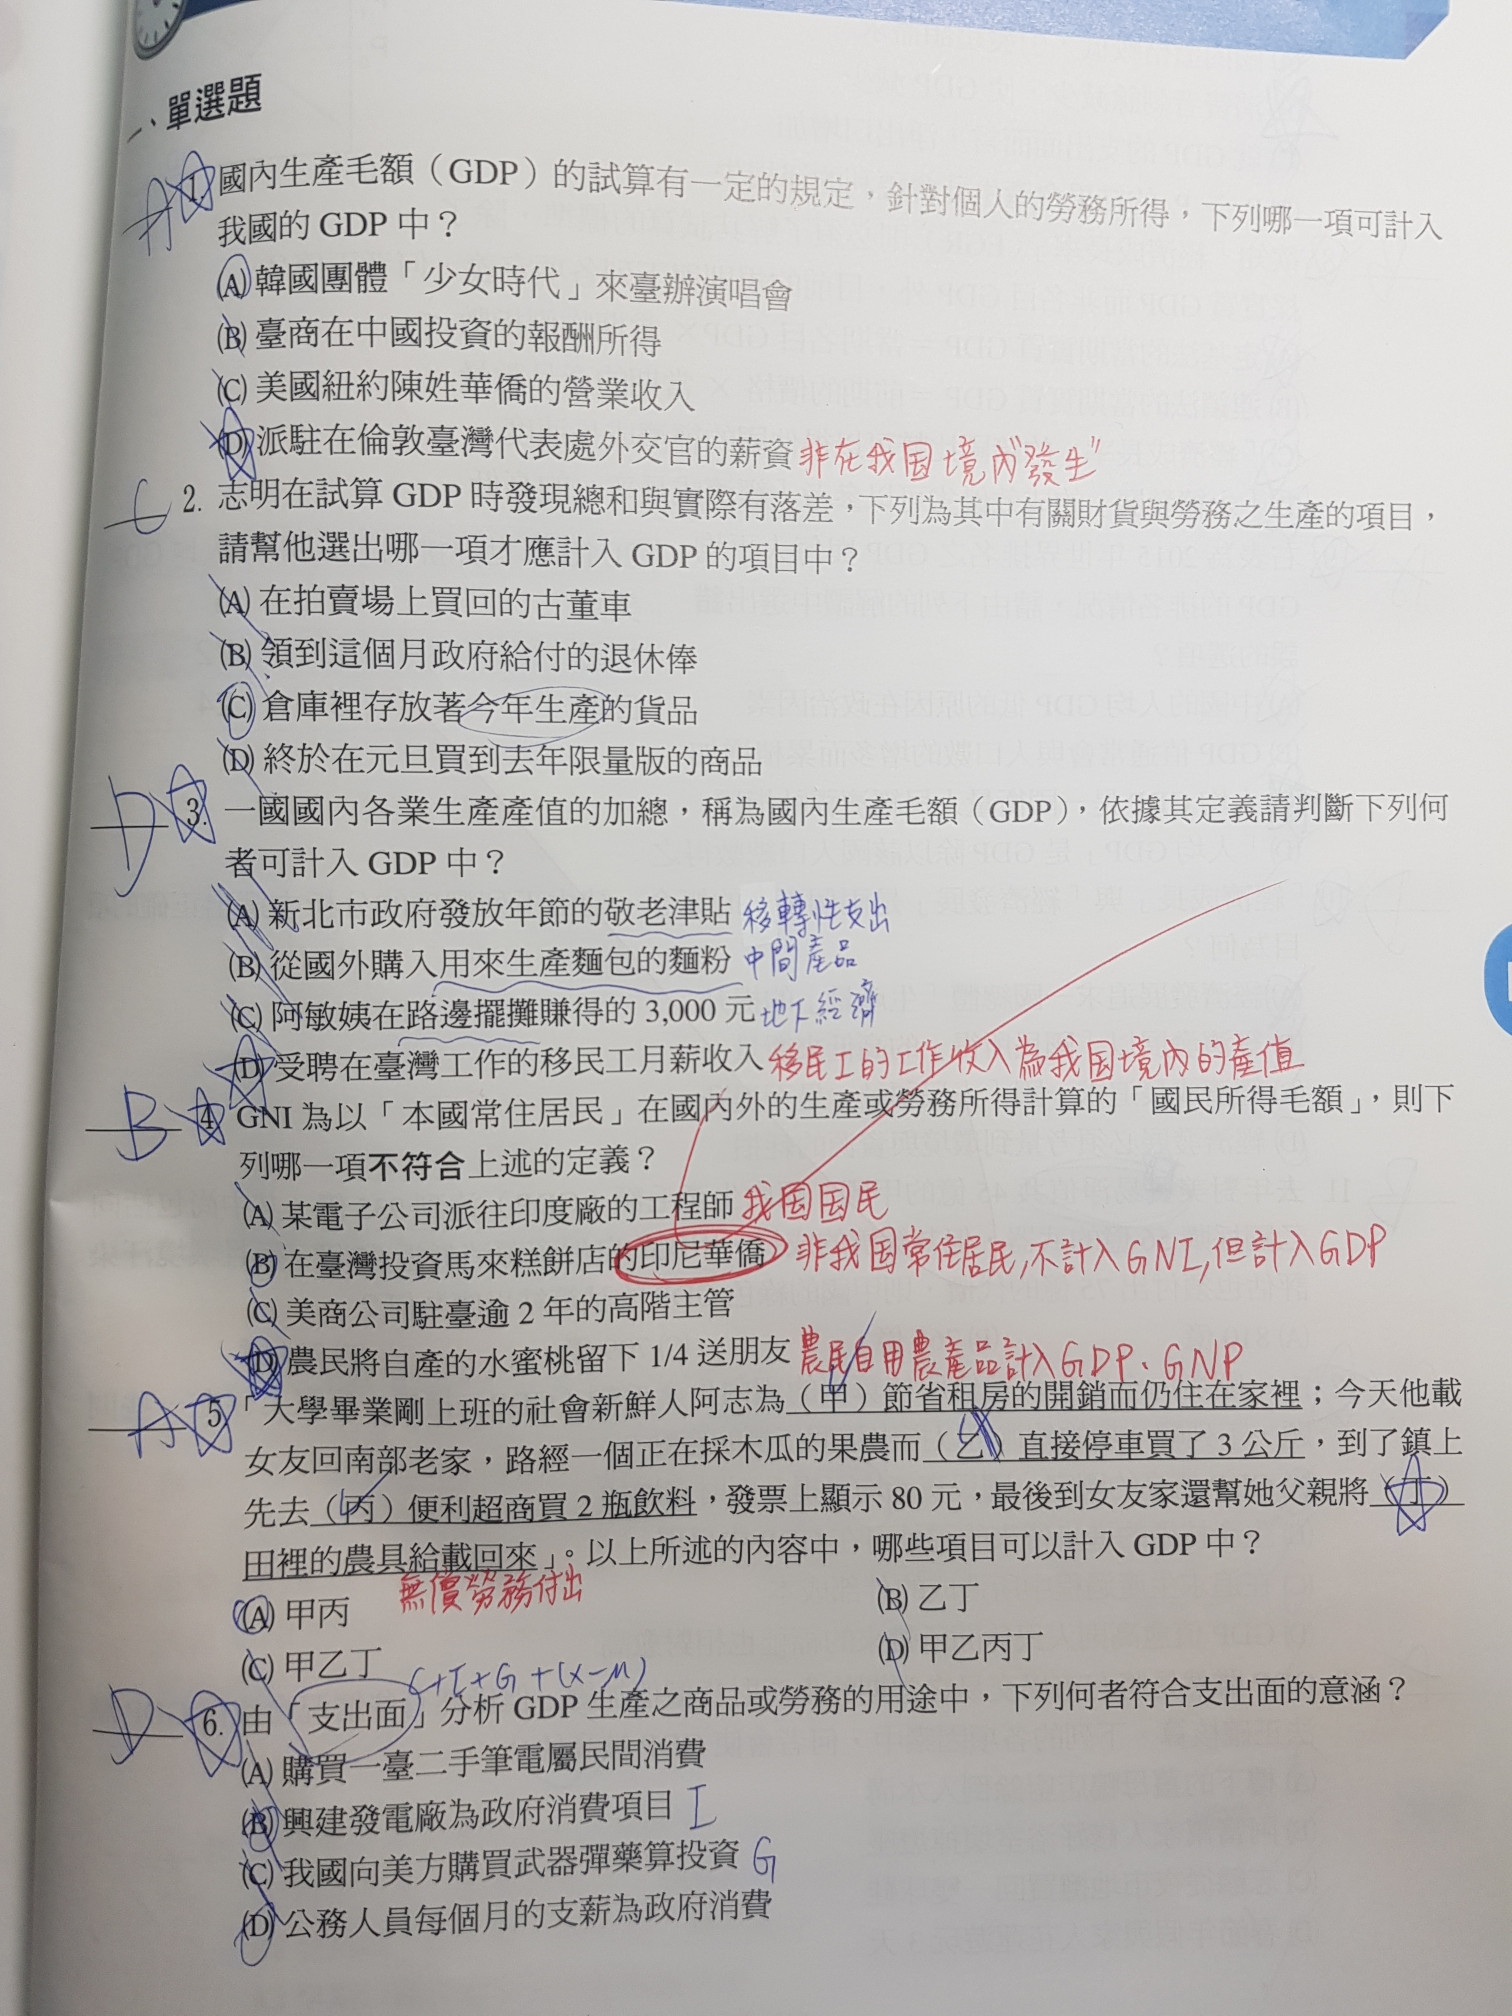 一、單選題
A 1. 國內生產毛額（GDP）的試算有一定的規定，針對個人的勞務所得，下列哪一項可計入
我國的 GDP 中？
(A) 韓國團體「少女時代」來臺辦演唱會
(B) 臺商在中國投資的報酬所得
(C) 美國紐約陳姓華僑的營業收入
(D) 派駐在倫敦臺灣代表處外交官的薪資 非在我国境內"發生"
C 2. 志明在試算 GDP 時發現總和與實際有落差，下列為其中有關財貨與勞務之生產的項目，
請幫他選出哪一項才應計入 GDP 的項目中？
(A) 在拍賣場上買回的古董車
(B) 領到這個月政府給付的退休俸
(C) 倉庫裡存放著今年生產的貨品
(D) 終於在元旦買到去年限量版的商品
D 3. 一國國內各業生產產值的加總，稱為國內生產毛額（GDP），依據其定義請判斷下列何
者可計入 GDP 中？
(A) 新北市政府發放年節的敬老津貼 移轉性支出
(B) 從國外購入用來生產麵包的麵粉 中間產品
(C) 阿敏姨在路邊擺攤賺得的 3,000 元 地下經濟
(D) 受聘在臺灣工作的移民工月薪收入 移民工的工作收入為我国境內的產值
B 4. GNI 為以「本國常住居民」在國內外的生產或勞務所得計算的「國民所得毛額」，則下
列哪一項不符合上述的定義？
(A) 某電子公司派往印度廠的工程師 我国国民
(B) 在臺灣投資馬來糕餅店的印尼華僑 非我国常住居民,不計入GNI,但計入GDP
(C) 美商公司駐臺逾 2 年的高階主管
(D) 農民將自產的水蜜桃留下 1/4 送朋友 農民自用農產品計入GDP、GNP
A 5. 「大學畢業剛上班的社會新鮮人阿志為（甲）節省租房的開銷而仍住在家裡；今天他載
女友回南部老家，路經一個正在採木瓜的果農而（乙）直接停車買了 3 公斤，到了鎮上
先去（丙）便利超商買 2 瓶飲料，發票上顯示 80 元，最後到女友家還幫她父親將（丁）
田裡的農具給載回來」。以上所述的內容中，哪些項目可以計入 GDP 中？
無償勞務付出
(A) 甲丙 (B) 乙丁
(C) 甲乙丁 (D) 甲乙丙丁
C+I+G+(X-M)
D 6. 由「支出面」分析 GDP 生產之商品或勞務的用途中，下列何者符合支出面的意涵？
(A) 購買一臺二手筆電屬民間消費
(B) 興建發電廠為政府消費項目 I
(C) 我國向美方購買武器彈藥算投資 G
(D) 公務人員每個月的支薪為政府消費